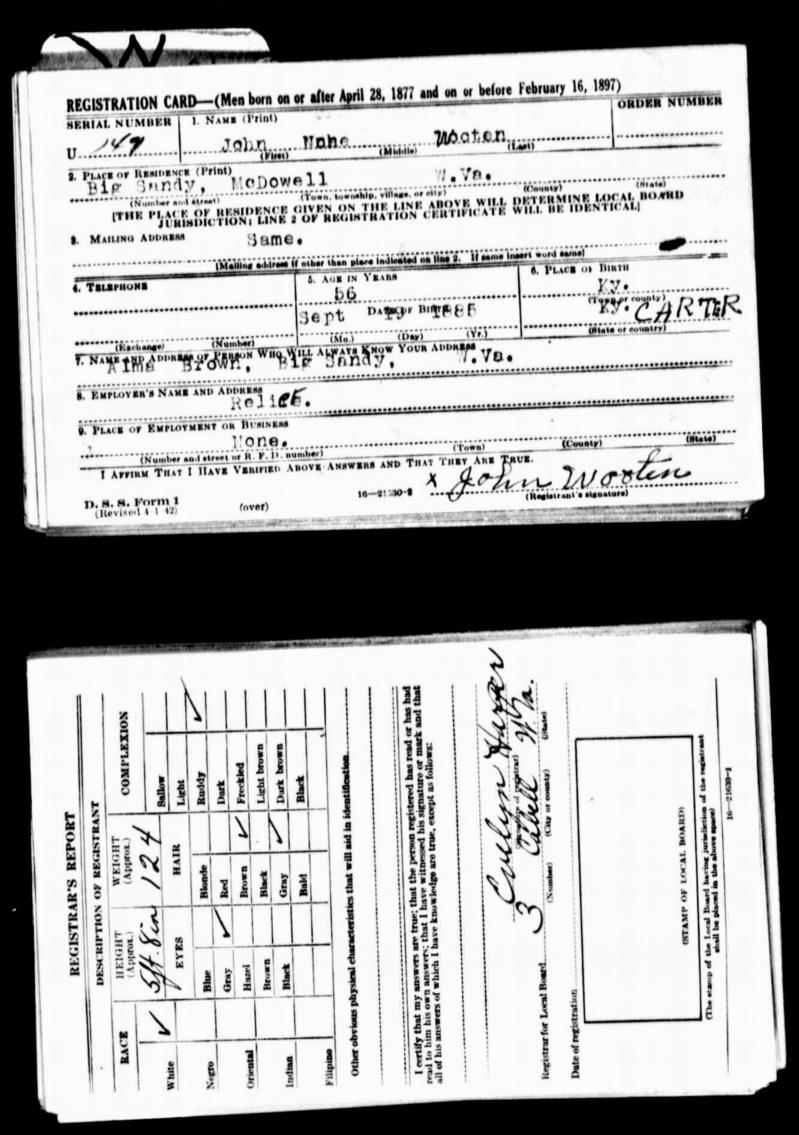 W
REGISTRATION CARD—(Men born on or after April 28, 1877 and on or before February 16, 1897)
SERIAL NUMBER
1. NAME (Print)
ORDER NUMBER
U 149
John Nohe Wooten
(First) (Middle) (Last)
2. PLACE OF RESIDENCE (Print)
Big Sandy, McDowell W.Va.
(Number and street) (Town, township, village, or city) (County) (State)
[THE PLACE OF RESIDENCE GIVEN ON THE LINE ABOVE WILL DETERMINE LOCAL BOARD
JURISDICTION; LINE 2 OF REGISTRATION CERTIFICATE WILL BE IDENTICAL]
3. MAILING ADDRESS Same.
[Mailing address if other than place indicated on line 2. If same insert word same]
4. TELEPHONE
5. AGE IN YEARS
6. PLACE OF BIRTH
56
Ky.
DATE OF BIRTH
(Town or county)
Sept 19 1885
Ky. CARTER
(Exchange) (Number) (Mo.) (Day) (Yr.) (State or country)
7. NAME AND ADDRESS OF PERSON WHO WILL ALWAYS KNOW YOUR ADDRESS
Alma Brown, Big Sandy, W.Va.
8. EMPLOYER'S NAME AND ADDRESS
Relief.
9. PLACE OF EMPLOYMENT OR BUSINESS
None.
(Number and street or R. F. D. number) (Town) (County) (State)
I AFFIRM THAT I HAVE VERIFIED ABOVE ANSWERS AND THAT THEY ARE TRUE.
x John Wooten
D. S. S. Form 1 16—21630-2 (Registrant's signature)
(Revised 4-1-42) (over)
REGISTRAR'S REPORT
DESCRIPTION OF REGISTRANT
RACE
HEIGHT (Approx.)
WEIGHT (Approx.)
COMPLEXION
White ✓
5ft 8in
124
Sallow
Light
EYES
HAIR
Negro
Blue
Blonde
Ruddy ✓
Gray ✓
Red
Dark
Oriental
Hazel
Brown ✓
Freckled
Brown
Black
Light brown
Indian
Black
Gray ✓
Dark brown
Bald
Black
Filipino
Other obvious physical characteristics that will aid in identification
I certify that my answers are true; that the person registered has read or has had
read to him his own answers; that I have witnessed his signature or mark and that
all of his answers of which I have knowledge are true, except as follows:
Evelyn Harper
(Signature of registrar)
Registrar for Local Board 3 Cabell W Va.
(Number) (City or county) (State)
Date of registration
(STAMP OF LOCAL BOARD)
(The stamp of the Local Board having jurisdiction of the registrant
shall be placed in the above space)
16—21630-1